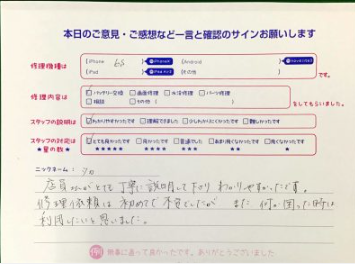 本日のご意見・ご感想など一言と確認のサインお願いします
修理機種は
iPhone 6S
Android
iPad
その他
です。
修理内容は
バッテリー交換 画面修理 水没修理 パーツ修理
その他（ ）
をしてもらいました。
スタッフの説明は
わかりやすかったです 理解できました 少しわかりにくかったです 難しかったです
スタッフの対応は
とても良かったです 良かったです 普通でした あまり良くなかったです 良くなかったです
★星の数★
★★★★★ ★★★★ ★★★ ★★ ★
ニックネーム：
店員さんがとても丁寧に説明して下さり わかりやすかったです。
修理依頼は初めてで不安でしたが また 何か困った時は
利用したいと思いました。
無事に直って良かったです。ありがとうございました